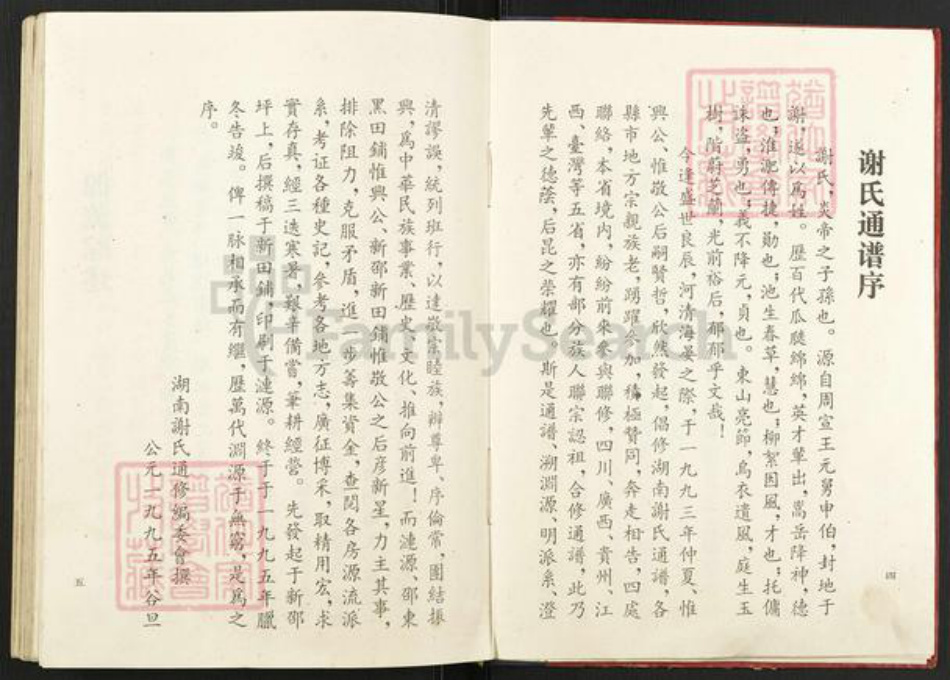 谢氏通谱序
謝氏，炎帝之子孫也。源自周宣王元舅申伯，封地于
謝，遂以爲姓。歷百代瓜瓞綿綿，英才輩出，嵩岳降神，德
也；淮淝傳捷，勛也；池生春草，慧也；柳絮因風，才也；托傭
誅盜，勇也；義不降元，貞也。東山亮節，烏衣遺風，庭生玉
樹，階蔚芝蘭，光前裕后，郁郁乎文哉！
今逢盛世良辰，河清海晏之際，于一九九三年仲夏、惟
興公、惟敬公后嗣賢哲，欣然發起，倡修湖南謝氏通譜，各
縣市地方宗親族老，踴躍參加，積極贊同，奔走相告，四處
聯絡，本省境内，紛紛前來參與聯修，四川、廣西、貴州、江
西、臺灣等五省，亦有部分族人聯宗認祖，合修通譜，此乃
先輩之德蔭，后昆之榮耀也。斯是通譜、溯淵源、明派系、澄
四
清謬誤，統列班行，以達敬宗睦族，辨尊卑、序倫常，團結振
興，爲中華民族事業、歷史、文化、推向前進！而漣源、邵東
黑田鋪惟興公、新邵新田鋪惟敬公之后彦新星，力主其事，
排除阻力，克服矛盾，進一步籌集資金，查閱各房源流派
系，考证各種史記，參考各地方志，廣征博采，取精用宏，求
實存真，經三迭寒暑，艱辛備嘗，筆耕經營。先發起于新邵
坪上，后撰稿于新田鋪，印刷于漣源。終于于一九九五年臘
冬告竣。俾一脉相承而有繼，歷萬代淵源于無窮，是爲之
序。
湖南謝氏通修編委會撰
公元一九九五年谷旦
五
FamilySearch